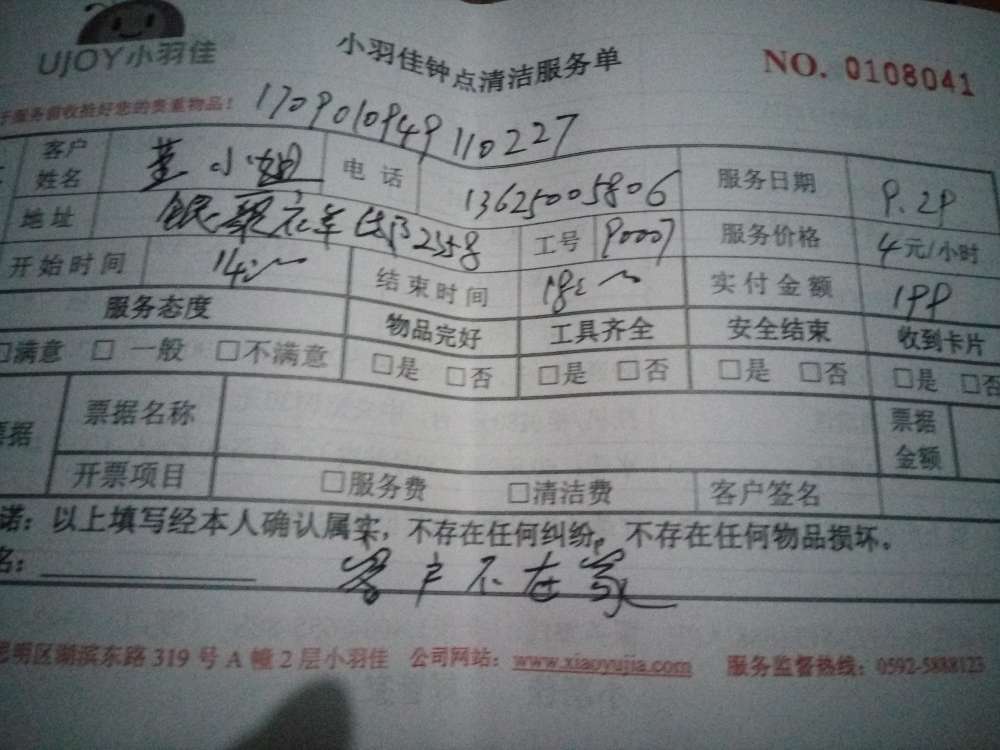 UJOY小羽佳
小羽佳钟点清洁服务单
NO. 0108041
服务前收拾好您的贵重物品！
1709010949110227
客户姓名 董小姐 电话 13625005806 服务日期 9.29
地址 2358 工号 90007 服务价格 4元/小时
开始时间 14: 结束时间 18: 实付金额 199
服务态度 物品完好 工具齐全 安全结束 收到卡片
□满意 □ 一般 □不满意 □是 □否 □是 □否 □是 □否 □是 □否
票据 票据名称 票据金额
开票项目 □服务费 □清洁费 客户签名
诺：以上填写经本人确认属实，不存在任何纠纷，不存在任何物品损坏。
名：
客户不在家
思明区湖滨东路 319 号 A 幢 2 层小羽佳 公司网站：www.xiaoyujia.com 服务监督热线：0592-5888123